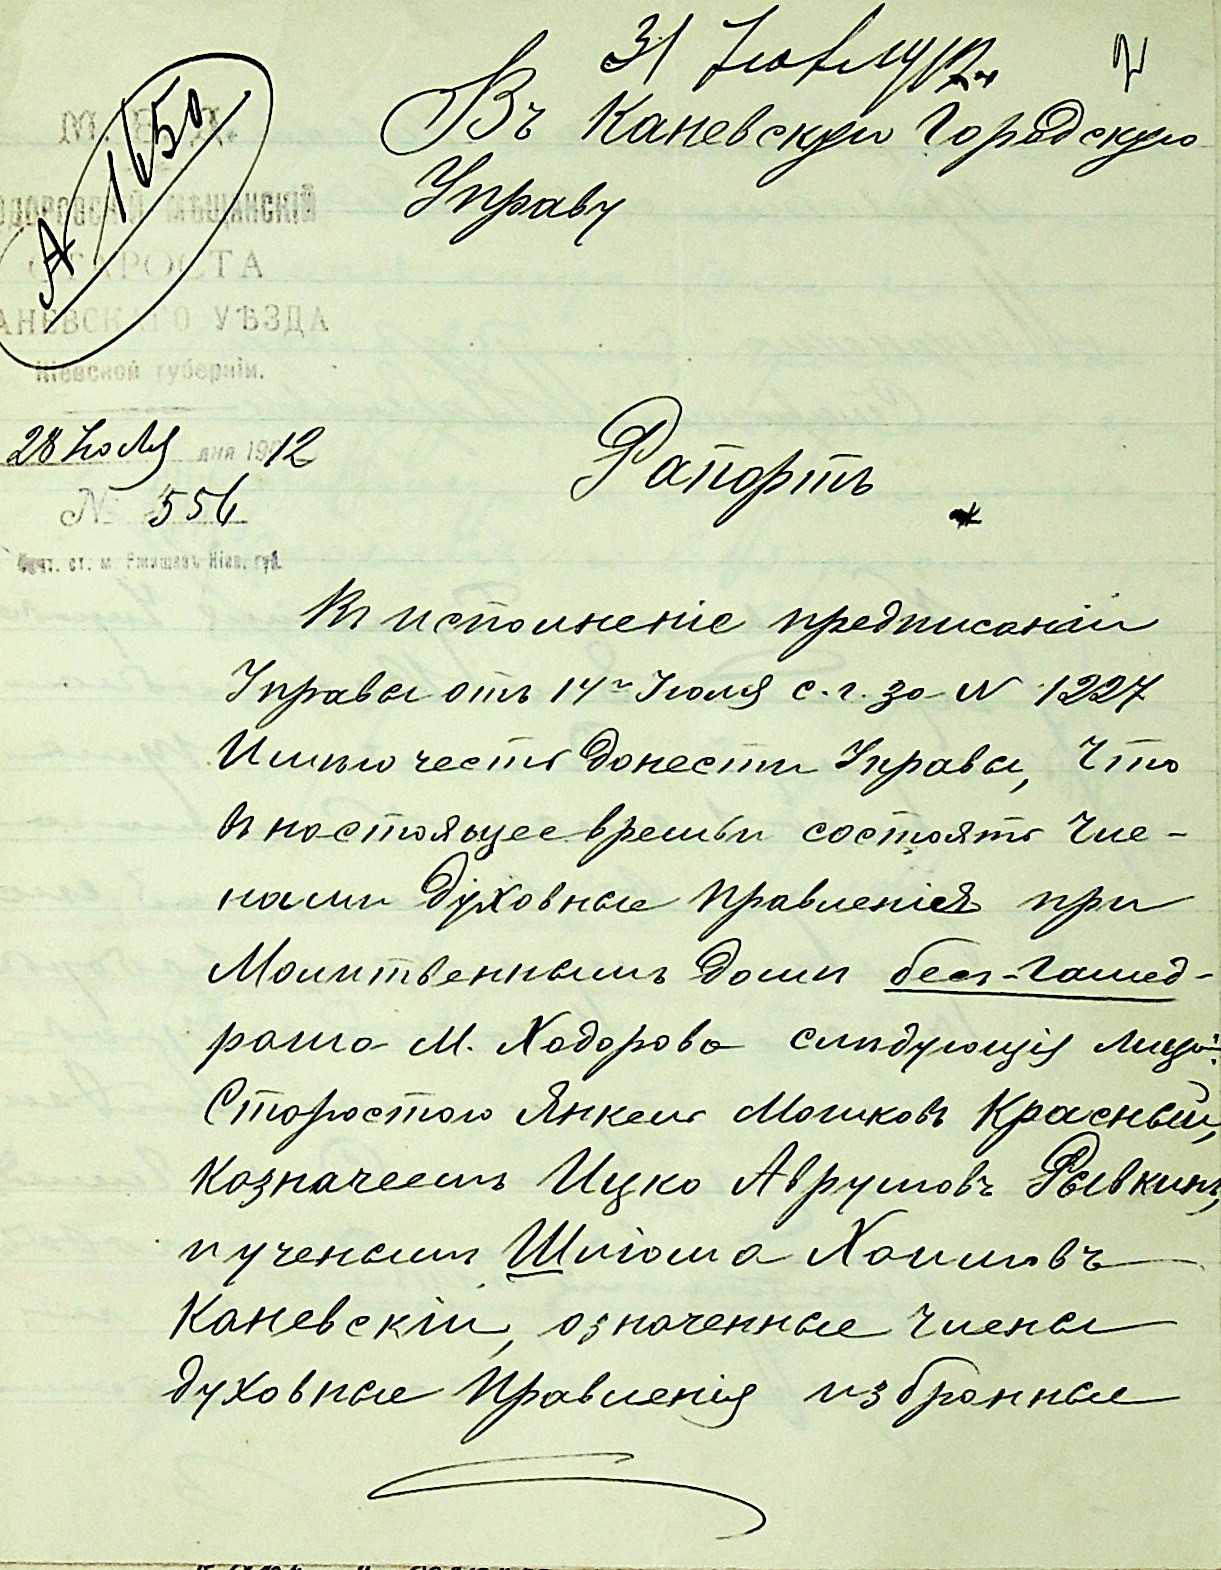 31 Июля 1912
2
Въ Каневскую Городскую
Управу
№ 1650
М. В. Д.
МѢЩАНСКІЙ
СТАРОСТА
КАНЕВСКАГО УѢЗДА
Кіевской губерніи.
28 Июля дня 1912
№ 556
Почт. ст. м. Ржищевъ Кіев. губ.
Рапортъ
Въ исполненіе предписаніи
Управы отъ 14го Июля с. г. за № 1227
Имѣю честь донести Управы, что
въ настоящее время состоятъ чле-
нами духовные правленія при
Молитвенным домѣ бесъ-гамед-
раша М. Ходорова слѣдующія лица:
Старостою Янкель Мошковъ Красный,
Казначеемъ Ицко Аврумовъ Рывкинъ,
и ученымъ Шліома Хаимовъ
Каневскій, означенные члены
духовные правленія избранные